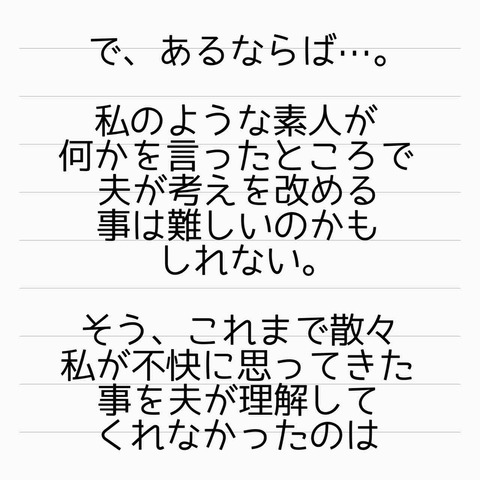 で、あるならば…。
私のような素人が
何かを言ったところで
夫が考えを改める
事は難しいのかも
しれない。
そう、これまで散々
私が不快に思ってきた
事を夫が理解して
くれなかったのは